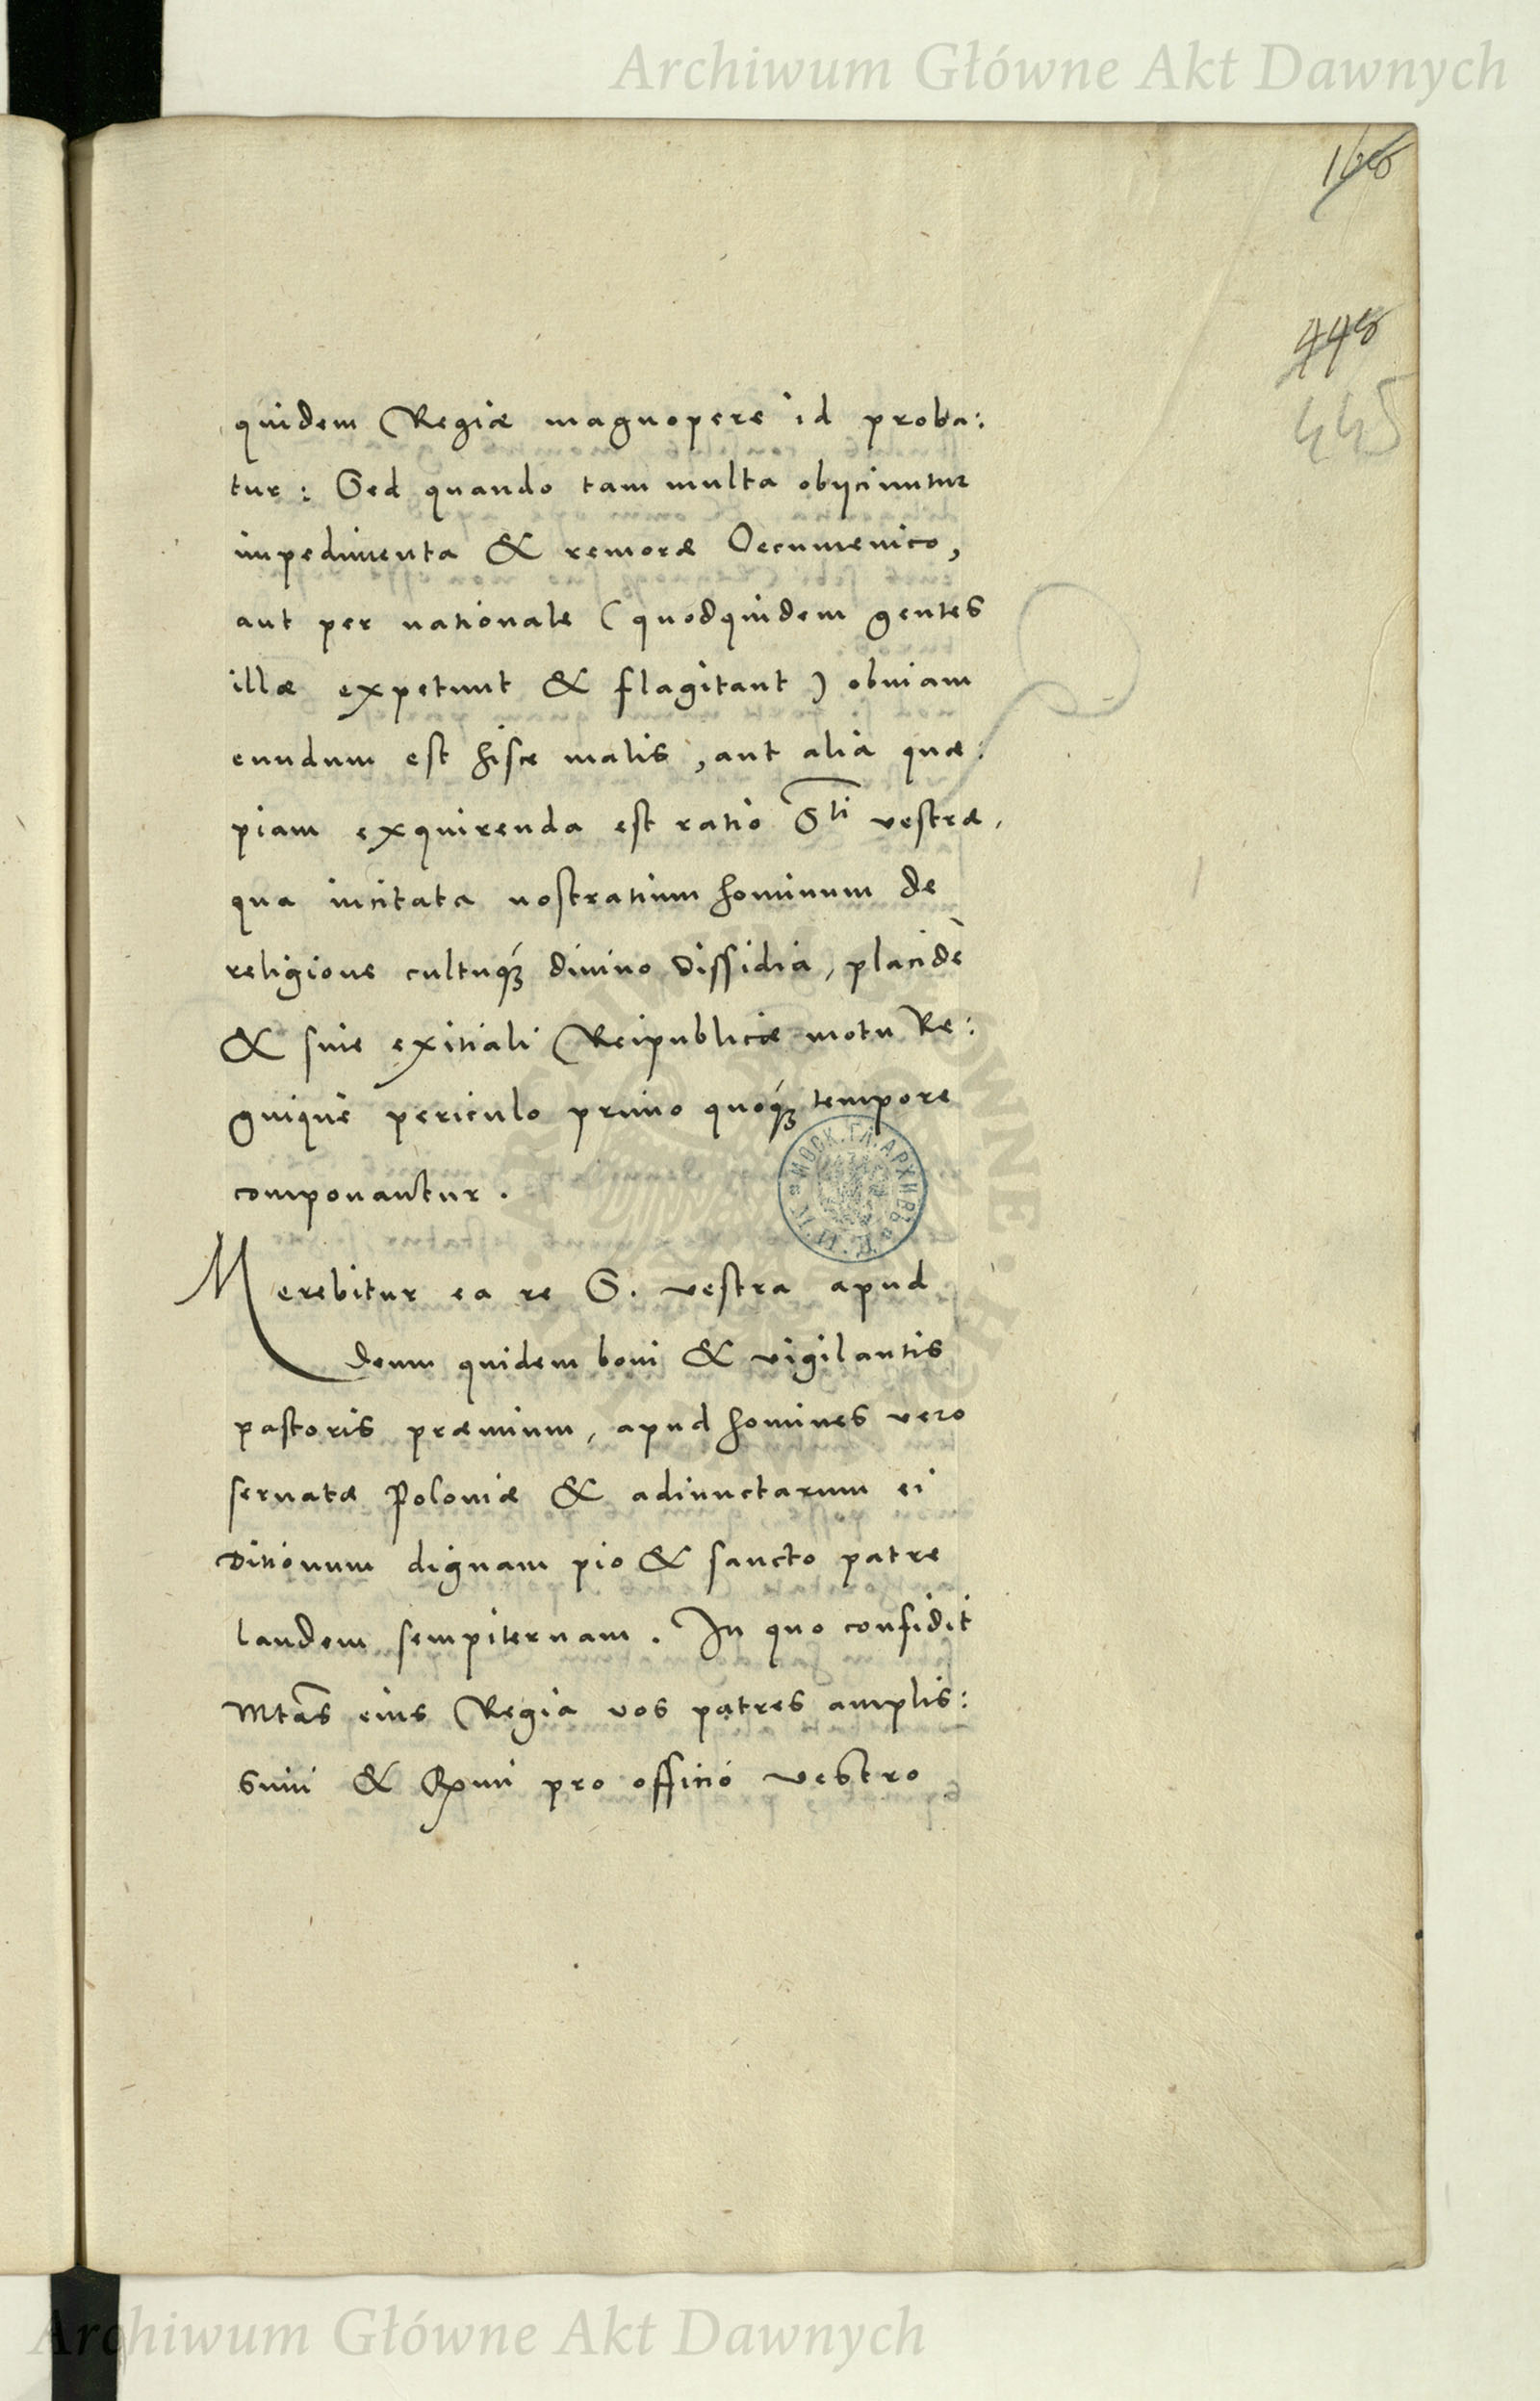 Archiwum Główne Akt Dawnych
448
445
quidem Regiæ magnopere id proba:
tur: Sed quando tam multa obijciuntur
impedimenta & remoræ Oecumenico,
aut per nationale (quodquidem gentes
illæ expetunt & flagitant) obuiam
eundum est hisce malis, aut alia quæ:
piam exquirenda est ratio S^ti vestræ,
qua incitata nostratium hominum de
religione cultuq́ꝫ diuino dissidia, placidè
& sine exitiali Reipublicæ motu Re:
gnique periculo primo quoq́ꝫ tempore
componantur.
Merebitur ea re S. vestra apud
deum quidem boni & vigilantis
pastoris præmium, apud homines vero
seruatæ Poloniæ & adiunctarum ei
ditionum dignam pio & sancto patre
laudem sempiternam. In quo confidit
Mtãs eius Regia vos patres amplis:
simi & Rmi pro officio vestro
МОСК. ГЛ. АРХИВЪ
Archiwum Główne Akt Dawnych